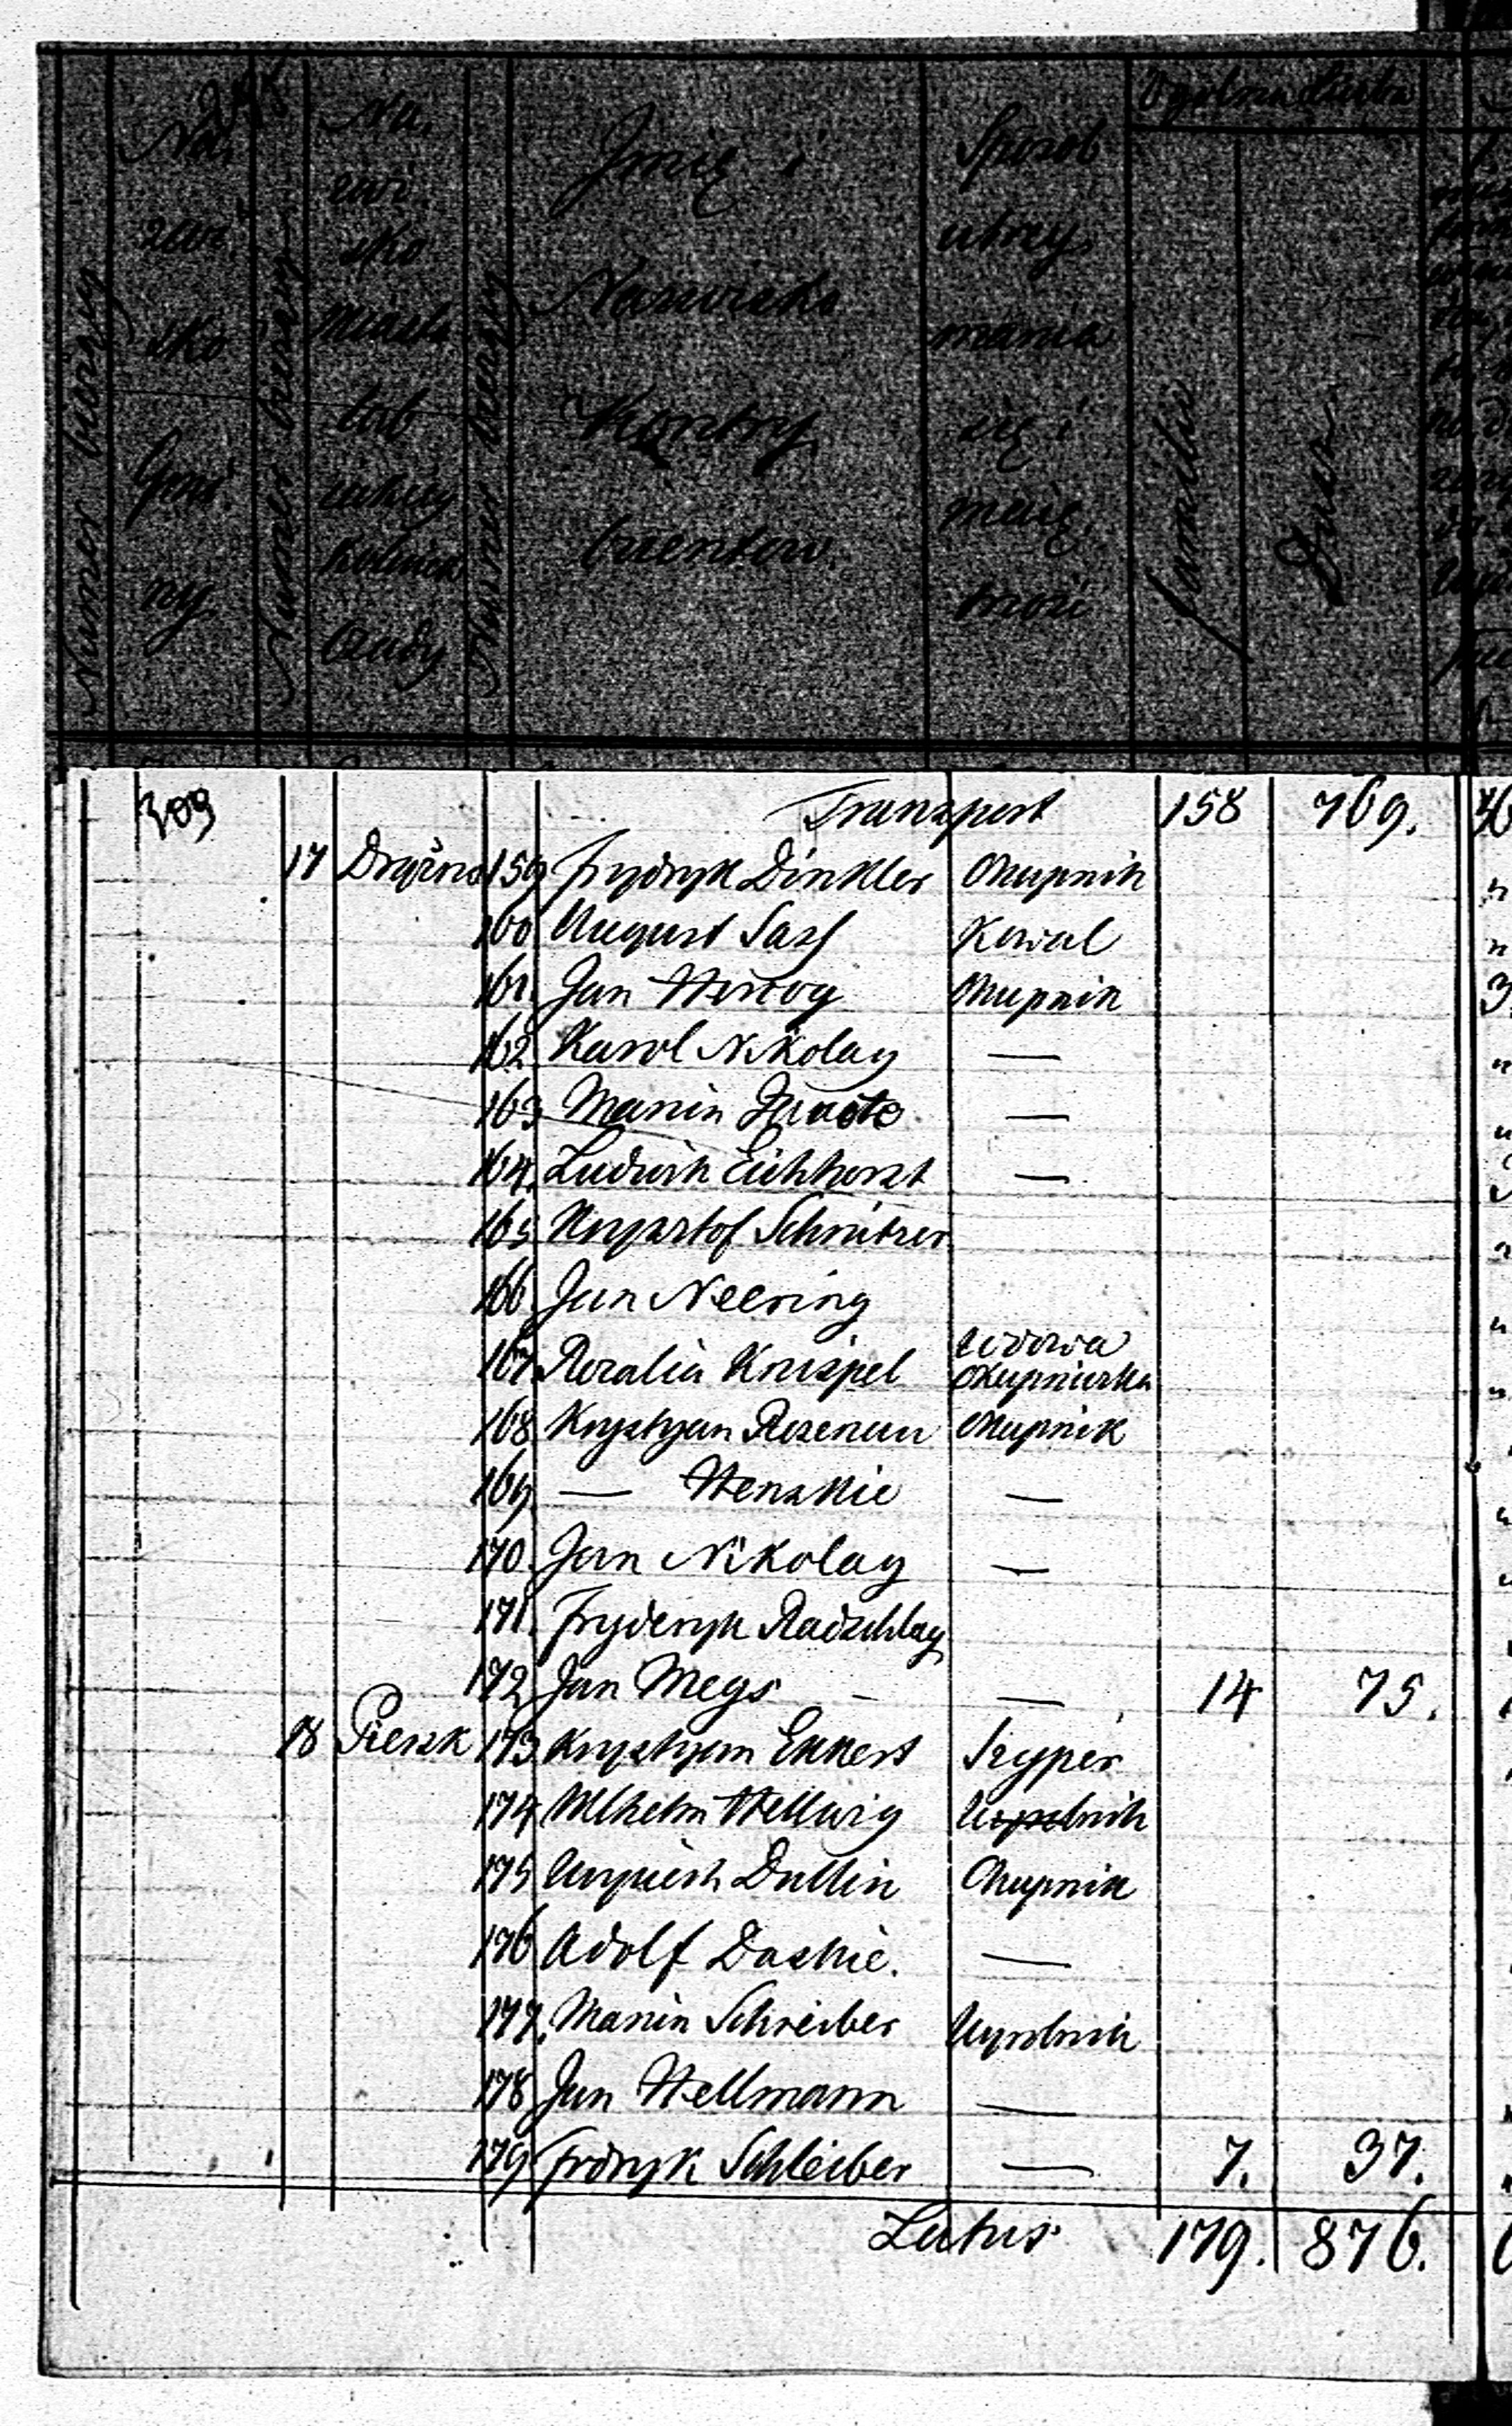 Numer bieżący
Nazwisko Gminy
Numer bieżący
Nazwisko Miasta lub wiejskiey Osady
Numer bieżący
Jmię i Nazwisko Kontrybuentow.
Sposob utrzymania się i maię, tność
Ogolna Liczba
familii
Dusz
309
Transport 158 769.
17 Drążno 159 Frydryk Dinkler Okupnik
160 August Sass Kowal
161. Jan Hercog Okupnik
162. Karol Nikolay —
163 Marcin —
164. Ludwik Eichhorst —
165 Krysztof Schnitzer
166 Jan Neering
167. Rozalia Knispel wdowa Okupniczka
168 Krystyan Rosenau Okupnik
169. — Henskie —
170. Jan Nikolay —
171. Fryderyk Radschlag
172 Jan Megs — 14 75.
18 Piersk 173 Krystyan Ekkert Szyper
174 Wilhelm Hellwig Wyrobnik
175 August Dullin Okupnik
176 Adolf Daskie. —
177. Marcin Schreiber Wyrobnik
178 Jan Hellmann —
179 Frdryk Schleiber — 7. 37.
Latus 179. 876.